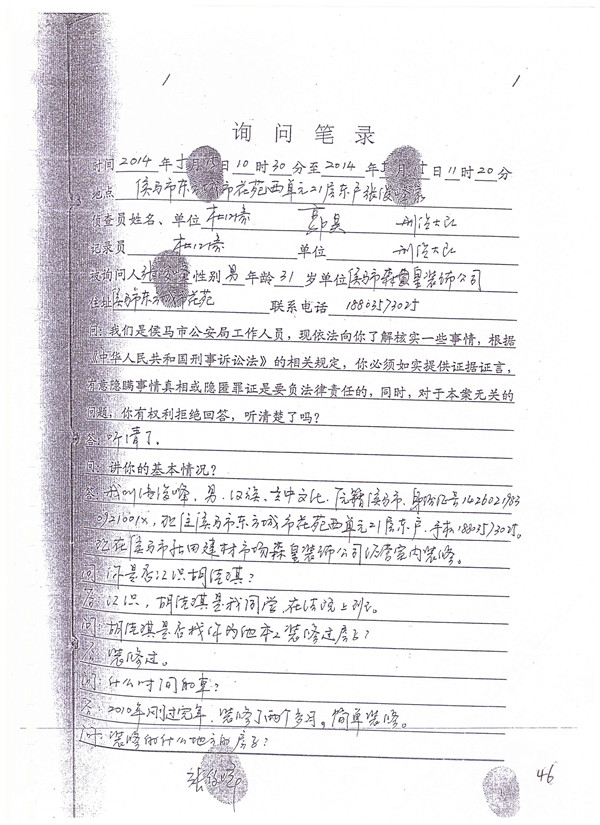 1 1
询问笔录
时间 2014 年 月 日 10 时 30 分至 2014 年 月 日 11 时 20 分
地点 侯马市东 城市花苑西单元21层东户张俊峰家
侦查员姓名、单位 杜 刑侦大队
记录员 杜 单位 刑侦大队
被询问人 张 性别 男 年龄 31 岁单位 侯马市森皇装饰公司
住址 侯马市东 城市花苑 联系电话 18803573025
问：我们是侯马市公安局工作人员，现依法向你了解核实一些事情，根据
《中华人民共和国刑事诉讼法》的相关规定，你必须如实提供证据证言，
有意隐瞒事情真相或隐匿罪证是要负法律责任的，同时，对于本案无关的
问题，你有权利拒绝回答，听清楚了吗？
答：听清了。
问：讲你的基本情况？
答：我叫张俊峰，男，汉族，高中文化，原籍侯马市，身份证号1426021983
021001X，现住侯马市东 城市花苑西单元21层东户，手机18803573025。
现在侯马市 田建材市场森皇装饰公司经营室内装修。
问：你是否认识胡 琪？
答：认识，胡 琪是我同学，在法院上班。
问：胡 琪是否找你为他本人装修过房子？
答：装修过。
问：什么时间的事？
答：2010年刚过完年，装修了两个多月，简单装修。
问：装修的什么地方的房子？
张俊峰 46